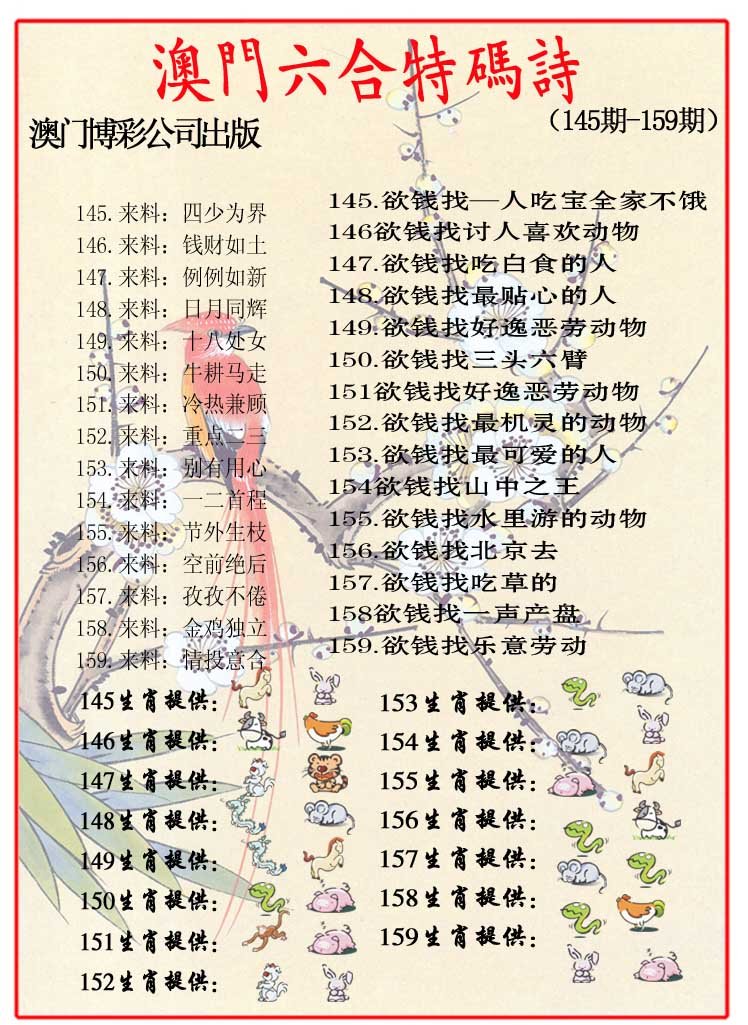 澳門六合特碼詩
澳门博彩公司出版
（145期-159期）
145.来料：四少为界
146.来料：钱财如土
147.来料：例例如新
148.来料：日月同辉
149.来料：十八处女
150.来料：牛耕马走
151.来料：冷热兼顾
152.来料：重点二三
153.来料：别有用心
154.来料：一二首程
155.来料：节外生枝
156.来料：空前绝后
157.来料：孜孜不倦
158.来料：金鸡独立
159.来料：情投意合
145.欲钱找—人吃宝全家不饿
146欲钱找讨人喜欢动物
147.欲钱找吃白食的人
148.欲钱找最贴心的人
149.欲钱找好逸恶劳动物
150.欲钱找三头六臂
151欲钱找好逸恶劳动物
152.欲钱找最机灵的动物
153.欲钱找最可爱的人
154欲钱找山中之王
155.欲钱找水里游的动物
156.欲钱找北京去
157.欲钱找吃草的
158欲钱找一声产盘
159.欲钱找乐意劳动
145生肖提供：
146生肖提供：
147生肖提供：
148生肖提供：
149生肖提供：
150生肖提供：
151生肖提供：
152生肖提供：
153生肖提供：
154生肖提供：
155生肖提供：
156生肖提供：
157生肖提供：
158生肖提供：
159生肖提供：